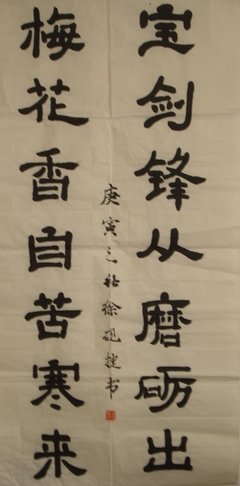 宝剑锋从磨砺出
梅花香自苦寒来
庚寅之秋徐
书